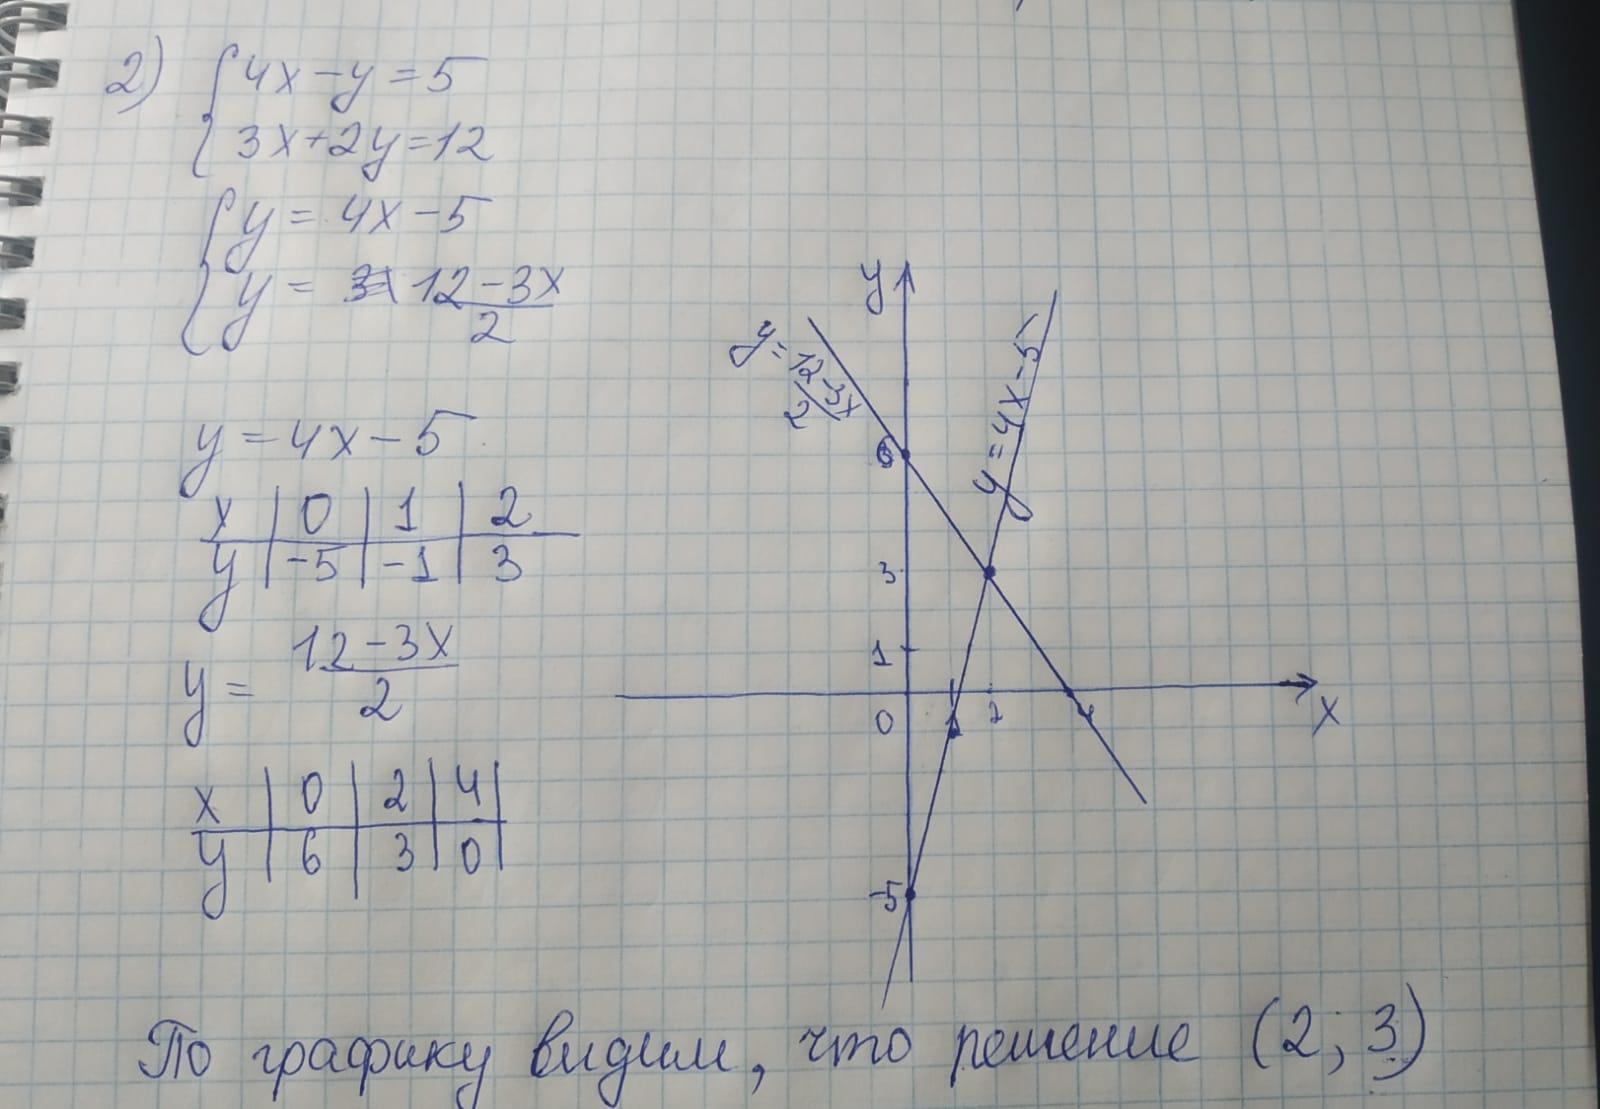 2) { 4x-y=5
3x+2y=12
{ y = 4x-5
y = 12-3x
2
y=4x-5
x | 0 | 1 | 2
y | -5 | -1 | 3
y = 12-3x
2
x | 0 | 2 | 4
y | 6 | 3 | 0
y
y = 12-3x
2
y = 4x-5
6
3
1
0 1 2 4 x
-5
По графику видим, что решение (2; 3)